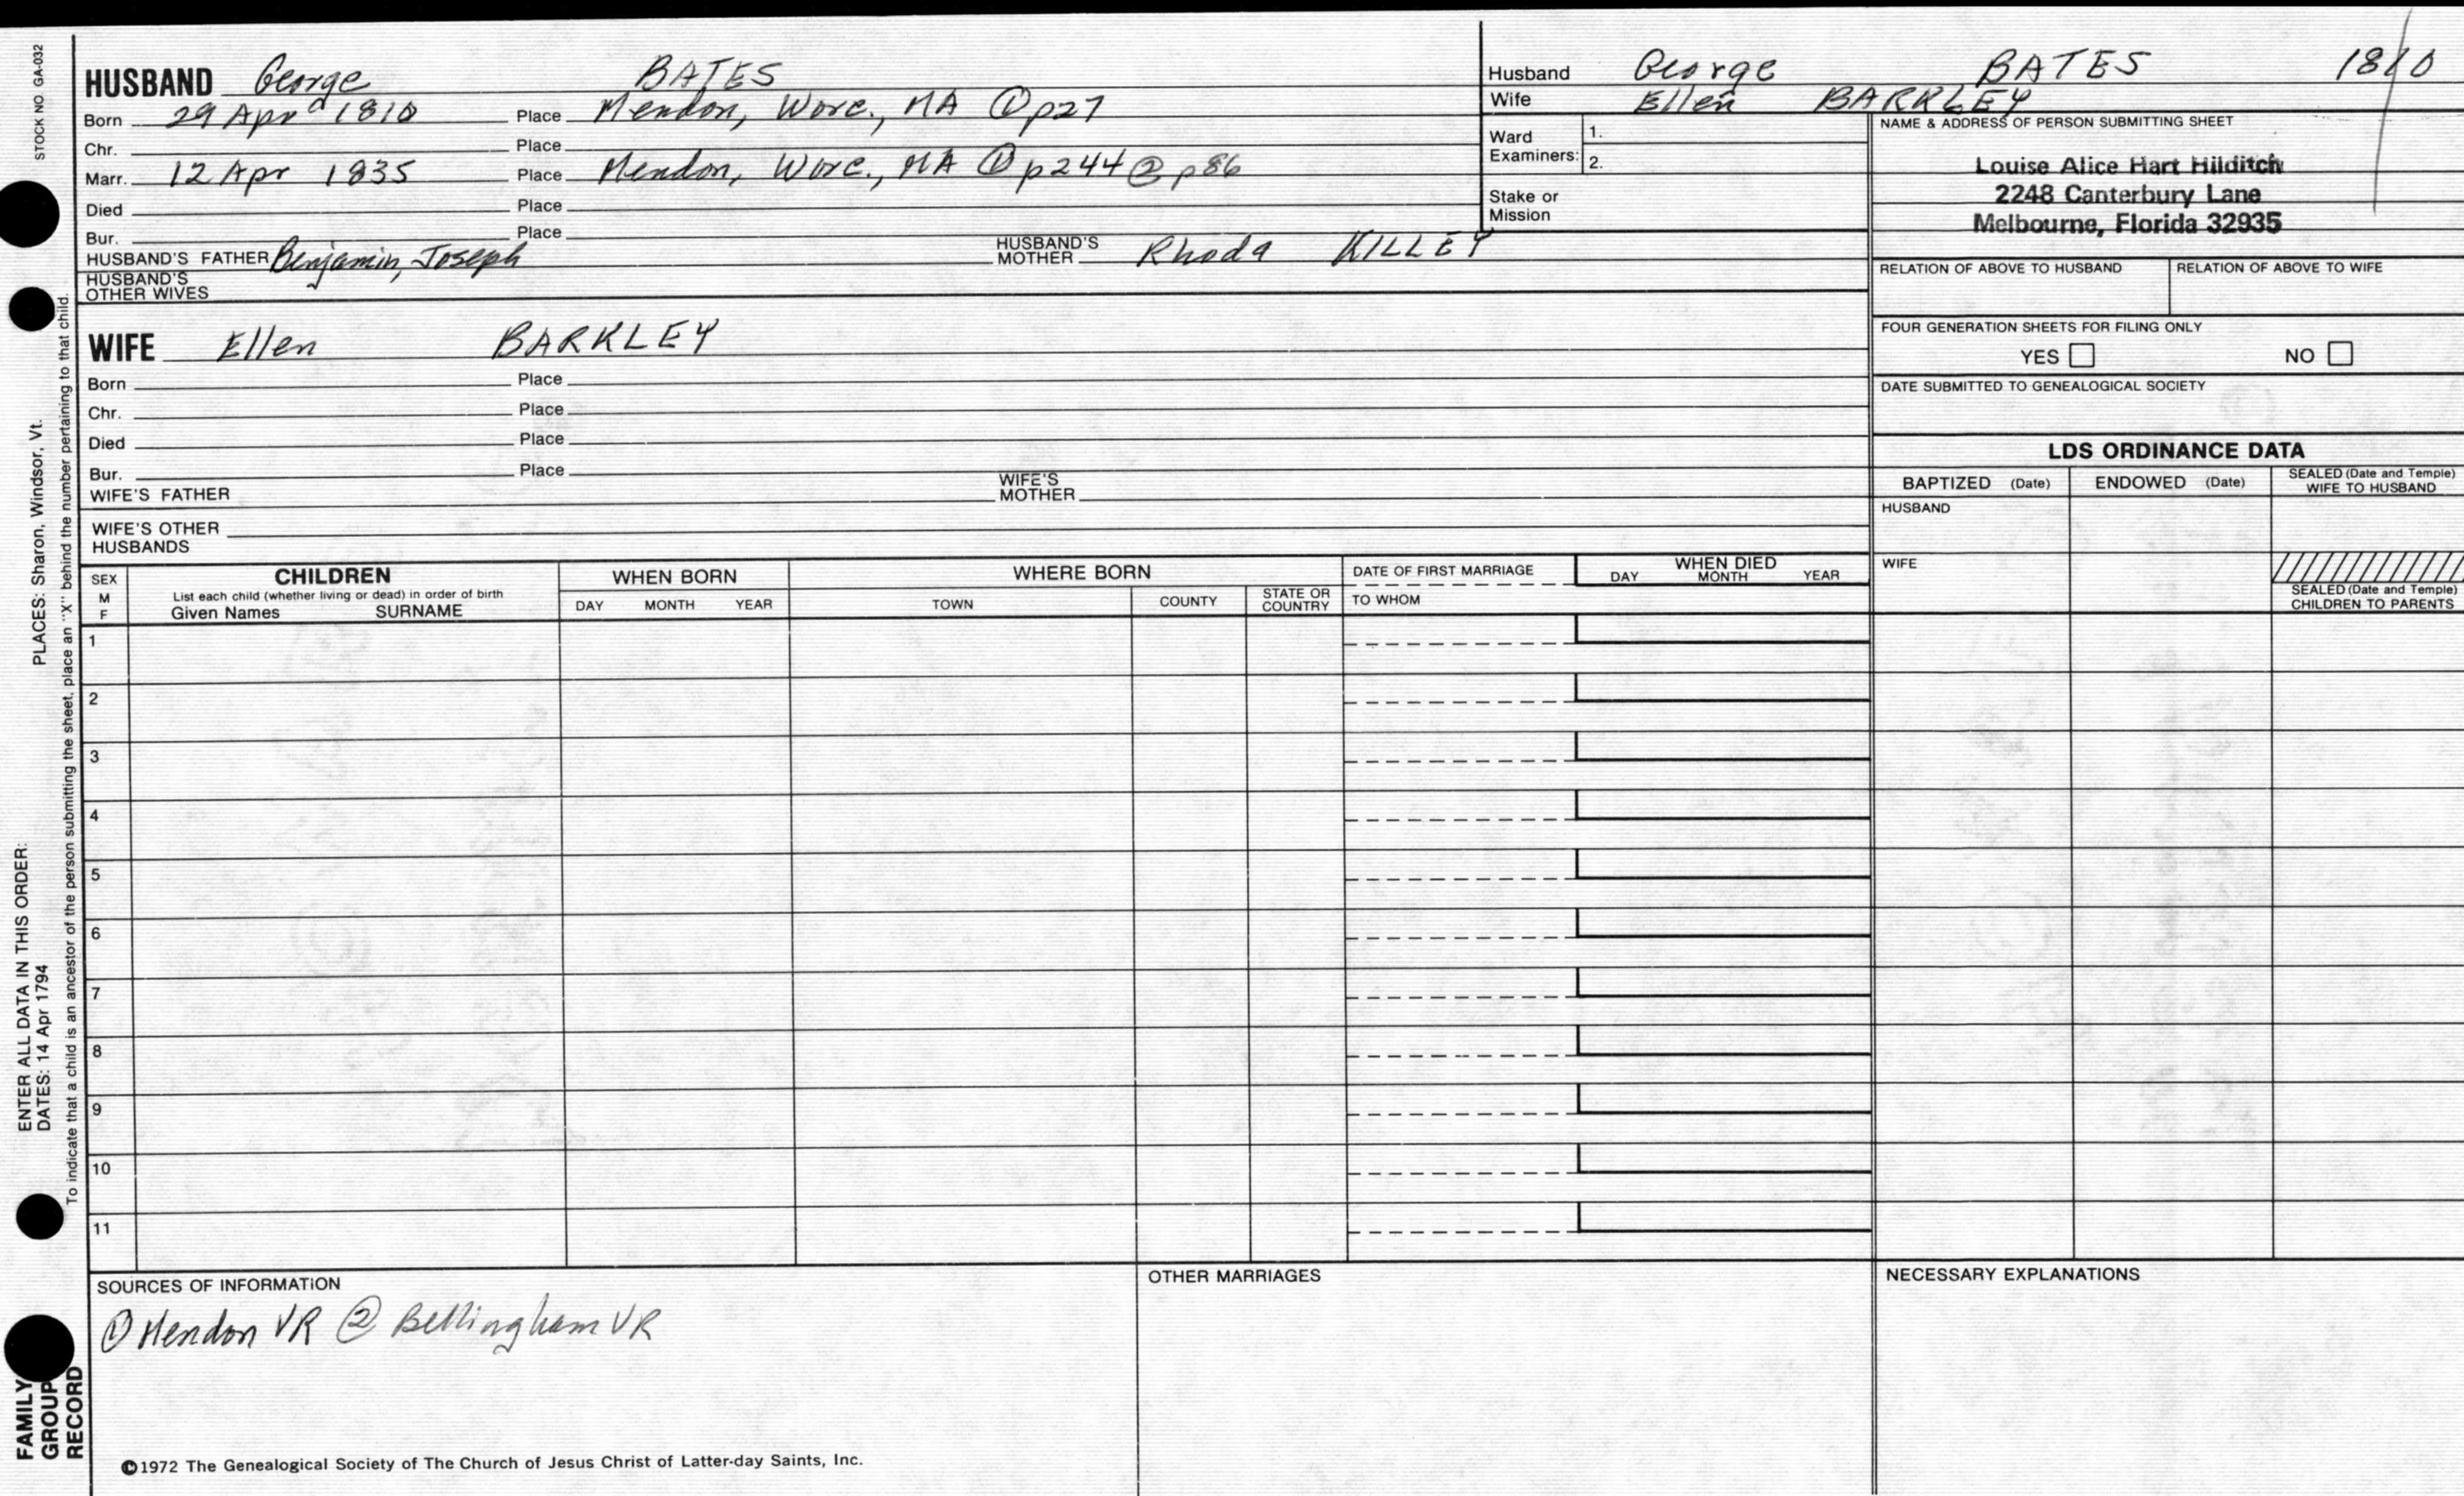 STOCK NO. GA-032
HUSBAND George BATES
Born 29 Apr 1810 Place Mendon, Worc., MA ① p27
Chr. Place
Marr. 12 Apr 1835 Place Mendon, Worc., MA ① p244 ② p86
Died Place
Bur. Place
HUSBAND'S FATHER Benjamin, Joseph HUSBAND'S MOTHER Rhoda KILLEY
HUSBAND'S OTHER WIVES
WIFE Ellen BARKLEY
Born Place
Chr. Place
Died Place
Bur. Place
WIFE'S FATHER WIFE'S MOTHER
WIFE'S OTHER HUSBANDS
Husband George BATES 1810
Wife Ellen BARKLEY
Ward Examiners: 1.
2.
Stake or Mission
NAME & ADDRESS OF PERSON SUBMITTING SHEET
Louise Alice Hart Hilditch
2248 Canterbury Lane
Melbourne, Florida 32935
RELATION OF ABOVE TO HUSBAND RELATION OF ABOVE TO WIFE
FOUR GENERATION SHEETS FOR FILING ONLY
YES NO
DATE SUBMITTED TO GENEALOGICAL SOCIETY
LDS ORDINANCE DATA
BAPTIZED (Date) ENDOWED (Date) SEALED (Date and Temple) WIFE TO HUSBAND
HUSBAND
WIFE
SEALED (Date and Temple) CHILDREN TO PARENTS
SEX M F
CHILDREN
List each child (whether living or dead) in order of birth
Given Names SURNAME
WHEN BORN
DAY MONTH YEAR
WHERE BORN
TOWN COUNTY STATE OR COUNTRY
DATE OF FIRST MARRIAGE
TO WHOM
WHEN DIED
DAY MONTH YEAR
1
2
3
4
5
6
7
8
9
10
11
SOURCES OF INFORMATION
① Mendon VR ② Bellingham VR
OTHER MARRIAGES
NECESSARY EXPLANATIONS
©1972 The Genealogical Society of The Church of Jesus Christ of Latter-day Saints, Inc.
ENTER ALL DATA IN THIS ORDER: PLACES: Sharon, Windsor, Vt.
DATES: 14 Apr 1794
To indicate that a child is an ancestor of the person submitting the sheet, place an "X" behind the number pertaining to that child.
FAMILY
GROUP
RECORD